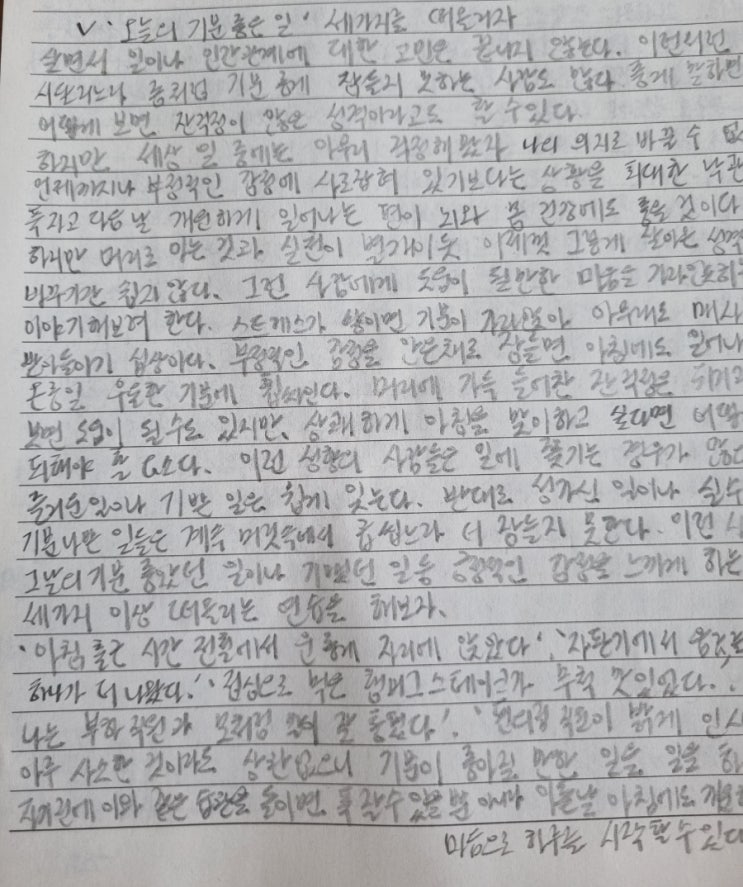 ∨ '오늘의 기분좋은 일' 세가지를 떠올리자
살면서 일이나 인간관계에 대한 고민은 끝나지 않는다. 이런저런
시달리느라 흥분된 기분 좋게 잠들지 못하는 사람도 많다. 좋게 말하면
어떻게 보면 잔걱정이 많은 성격이라고도 할 수 있다
하지만 세상 일 중에는 아무리 걱정해봤자 나의 의지로 바꿀 수 없
언제까지나 부정적인 감정에 사로잡혀 있기보다는 상황을 최대한 낙관
푹자고 다음날 개운하게 일어나는 편이 뇌와 몸 건강에도 좋을 것이다
하지만 머리로 아는 것과 실천이 별개이듯 이제껏 그렇게 살아온 성격
바꾸기란 쉽지 않다. 그런 사람에게 도움이 될만한 마음을 가라앉히는
이야기해보려 한다. 스트레스가 쌓이면 기분이 가라앉아 아무래도 매사
받아들이기 십상이다. 부정적인 감정을 안은채로 잠들면 아침에도 일어나
온종일 우울한 기분에 휩싸인다. 머리에 가득 들어찬 잔걱정은
보면 도움이 될 수도 있지만, 상쾌하게 아침을 맞이하고 싶다면 어떻
되해야 할 요소다. 이런 성향의 사람들은 일에 쫓기는 경우가 많
즐거운 일이나 기쁜 일은 쉽게 잊는다. 반대로 성가신 일이나 실수
기분나쁜 일들은 계속 머릿속에서 곱씹느라 더 잠들지 못한다. 이런 사
그날의 기분 좋았던 일이나 기뻤던 일 등 긍정적인 감정을 느끼게 하는
세가지 이상 떠올리는 연습을 해보자.
'아침 출근 시간 전철에서 운좋게 자리에 앉았다', '자판기에서 음료
하나가 더 나왔다.' '점심으로 먹은 햄버그스테이크가 무척 맛있었다.'
나는 부하 직원과 잘 통했다', '편의점 직원이 밝게 인사
아주 사소한 것이라도 상관없으니 기분이 좋아질 만한 일들 일을 하
자기전에 이와 같은 습관을 들이면 푹 잘수 있을 뿐 아니라 이튿날 아침에도 개운한
마음으로 하루를 시작할 수 있다